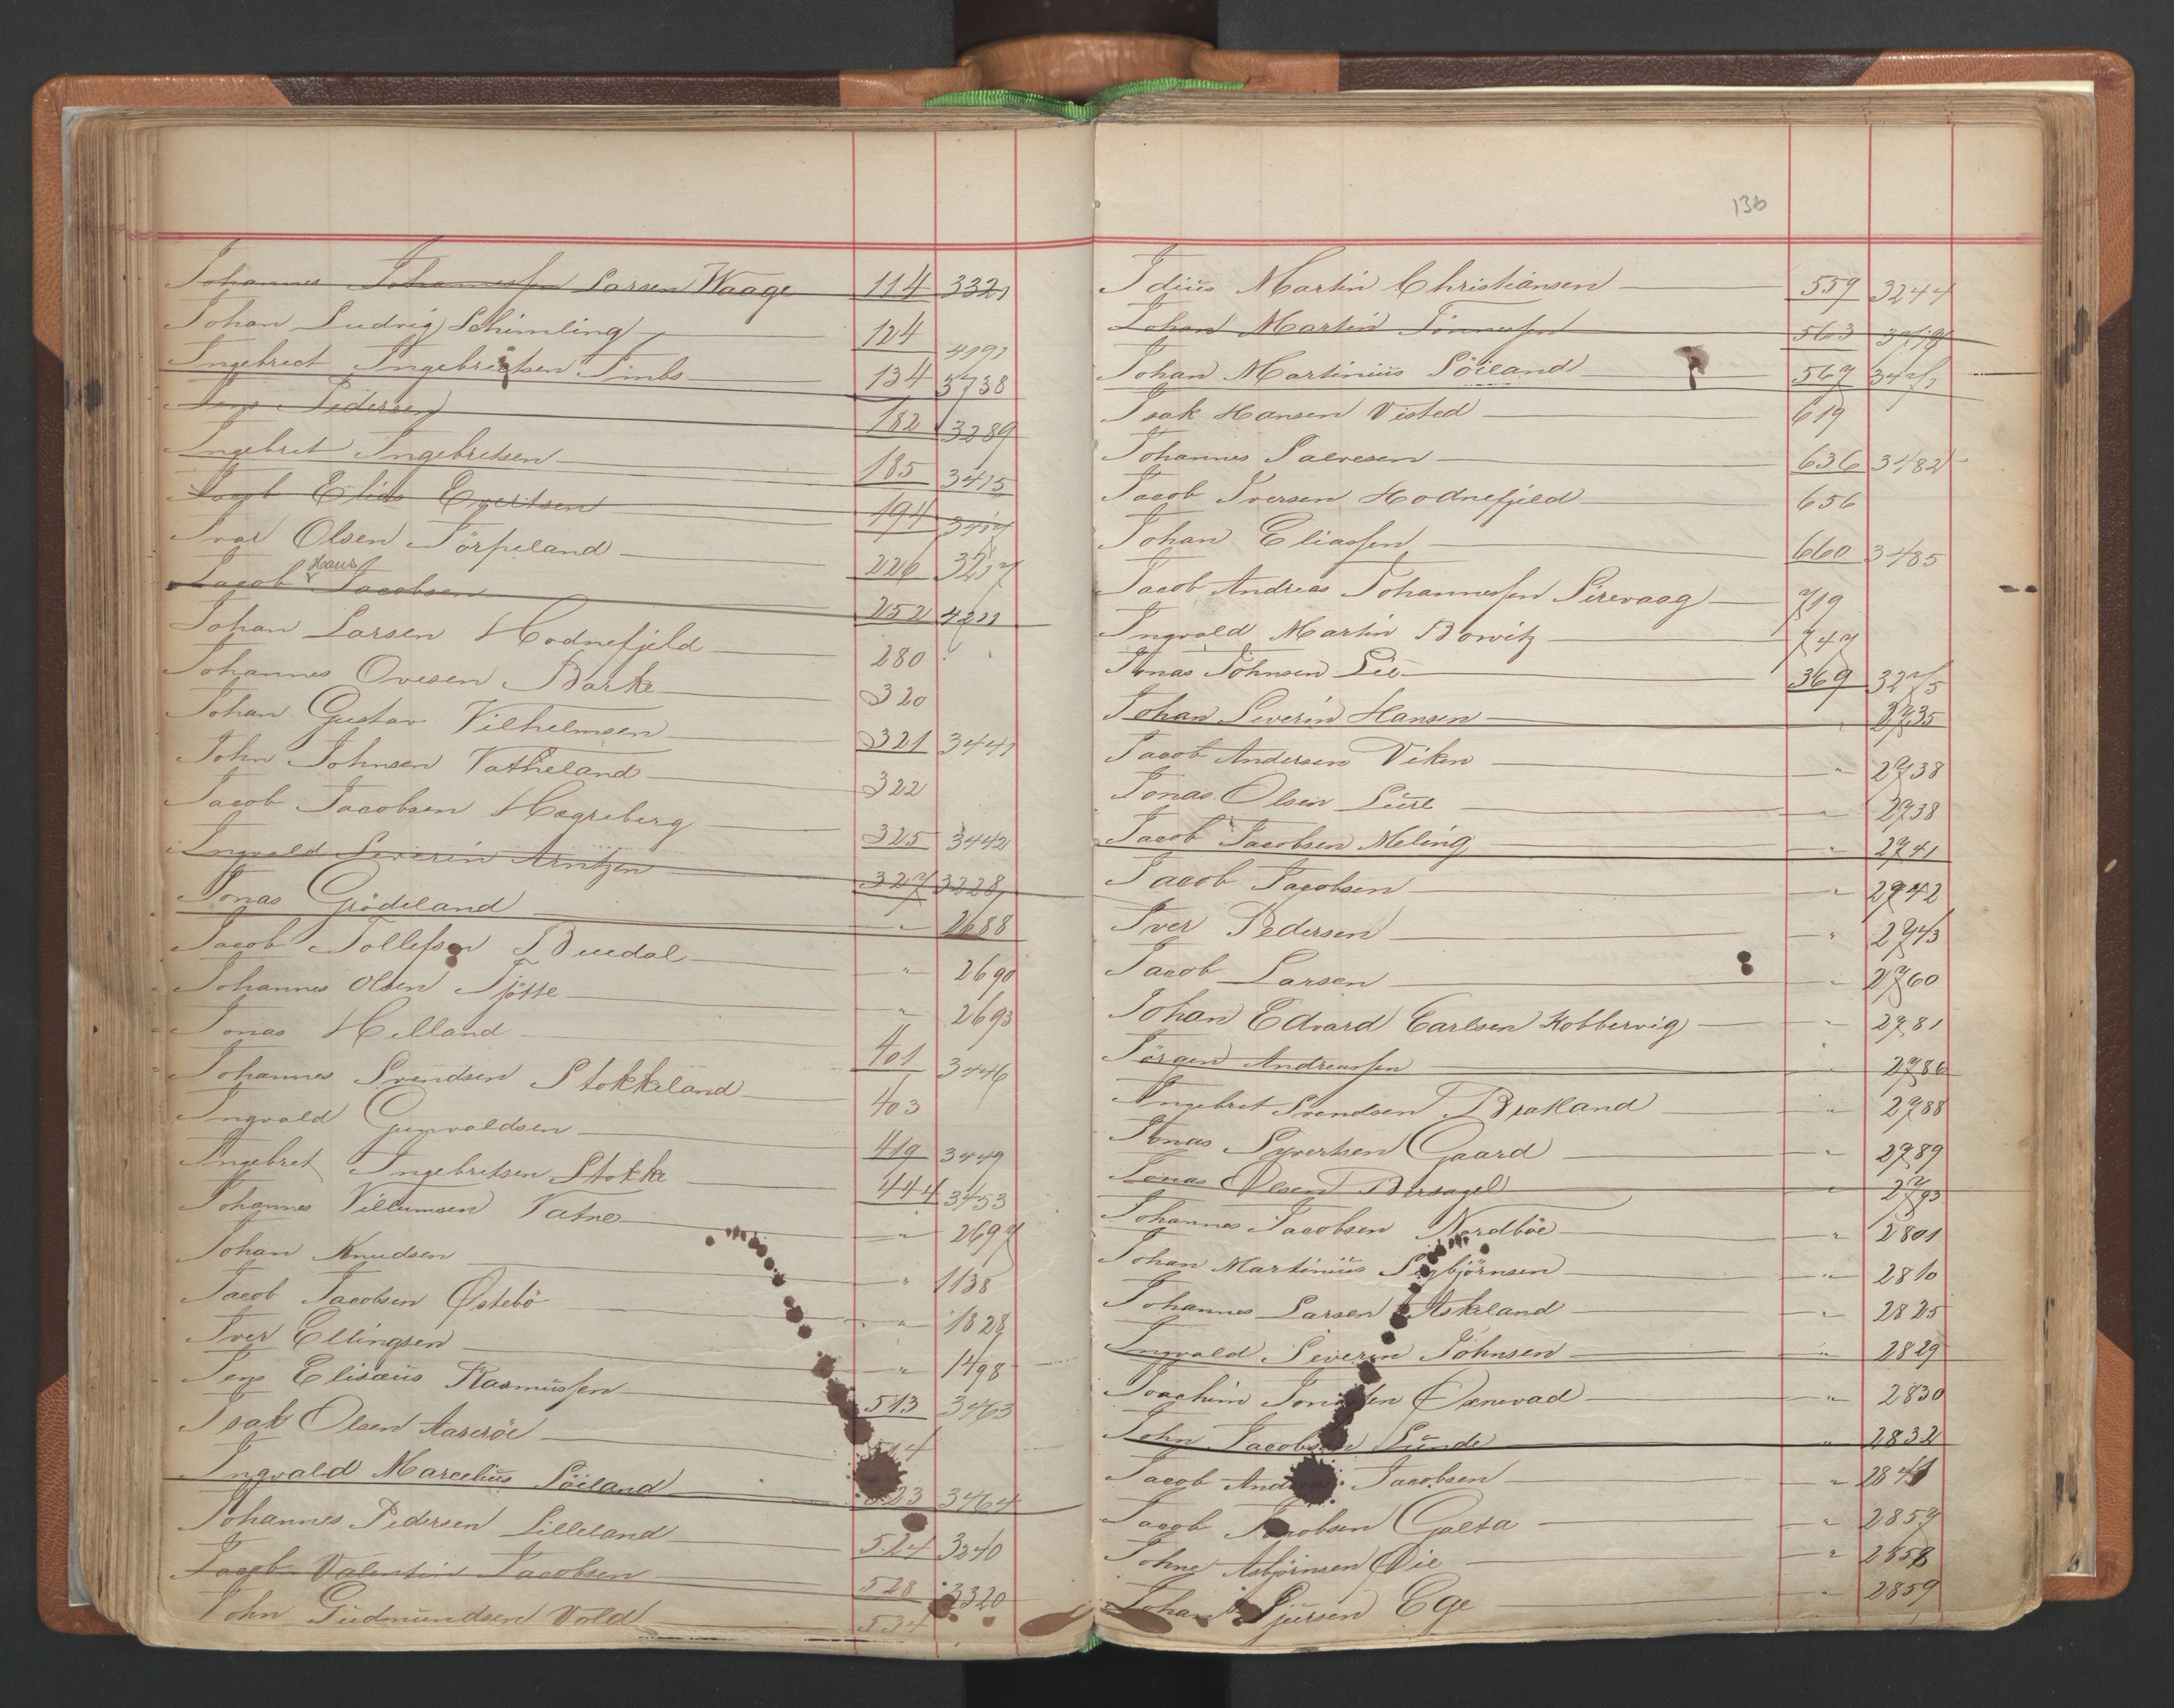 Johannes Johannessen Larsen Waage 114 3321
Johan Ludvig Schimling 124 4191
Ingebrect Ingebrictsen Timbs 134 3738
Jens Pedersen 182 3289
Ingebret Ingebretsen 185 3415
Jacob Elias Evertsen 194 3417
Ivar Olsen Törpeland 226 3217
Jacob Hans Jacobsen 252 4211
Johan Larsen Hodnefjeld 280
Johannes Ovesen Barke 320
Johan Gustav Vilhelmsen 321 3441
John Johnsen Vatneland 322
Jacob Jacobsen Hagreberg 325 3442
Ingvald Severin Arntzen 327 3228
Jonas Grödeland " 2688
Jacob Tollefsen Buedal " 2690
Johannes Olsen Tjötte " 2693
Jonas Helland 401 3446
Johannes Svendsen Stokkeland 403
Ingvald Gunvaldsen 419 3449
Ingebret Ingebretsen Stokke 444 3453
Johannes Villumsen Vatne " 2697
Johan Knudsen " 1138
Jacob Jacobsen Østebö " 1828
Iver Ellingsen " 1498
Jens Elisæus Rasmussen 513 3463
Isak Olsen Aaseröe 514
Ingvald Marcelius Söiland 523 3464
Johannes Pedersen Lilleland 524 3240
Jacob Valentin Jacobsen 528 3320
John Gudmundsen Vold 534
136
Idius Martin Christiansen 559 3244
Johan Martin Tönnessen 563
Johan Martinius Söiland 567 3471
Isak Hansen Visted 619
Johannes Salvesen 636 3482
Jacob Iversen Hodnefjeld 656
Johan Eliassen 660 3485
Jacob Andreas Johannessen Sirevaag 719
Ingvald Martin Bowitz 747
Jonas Johnsen Lie 369 3275
Johan Severin Hansen " 2735
Jacob Andersen Viken " 2738
Jonas Olsen Lure " 2738
Jacob Jacobsen Meling " 2741
Jacob Jacobsen " 2742
Iver Pedersen " 2743
Jacob Larsen " 2760
Johan Edvard Carlsen Kobbervig " 2781
Jörgen Andreassen " 2786
Ingebret Svendsen Brakland " 2788
Jonas Syvertsen Gaard " 2789
Jonas Olsen Bersagel " 2793
Johannes Jacobsen Nordböe " 2801
Johan Martinius Sigbjörnsen " 2810
Johannes Larsen Askeland " 2825
Ingvald Severin Johnsen " 2829
Joachim Oxnevad " 2830
John Jacobsen Lunde " 2832
Jacob Andreas Jacobsen " 2841
Jacob Jacobsen Galta " 2857
Johne Asbjörnsen Oie " 2858
Johan Sjursen Ege " 2859